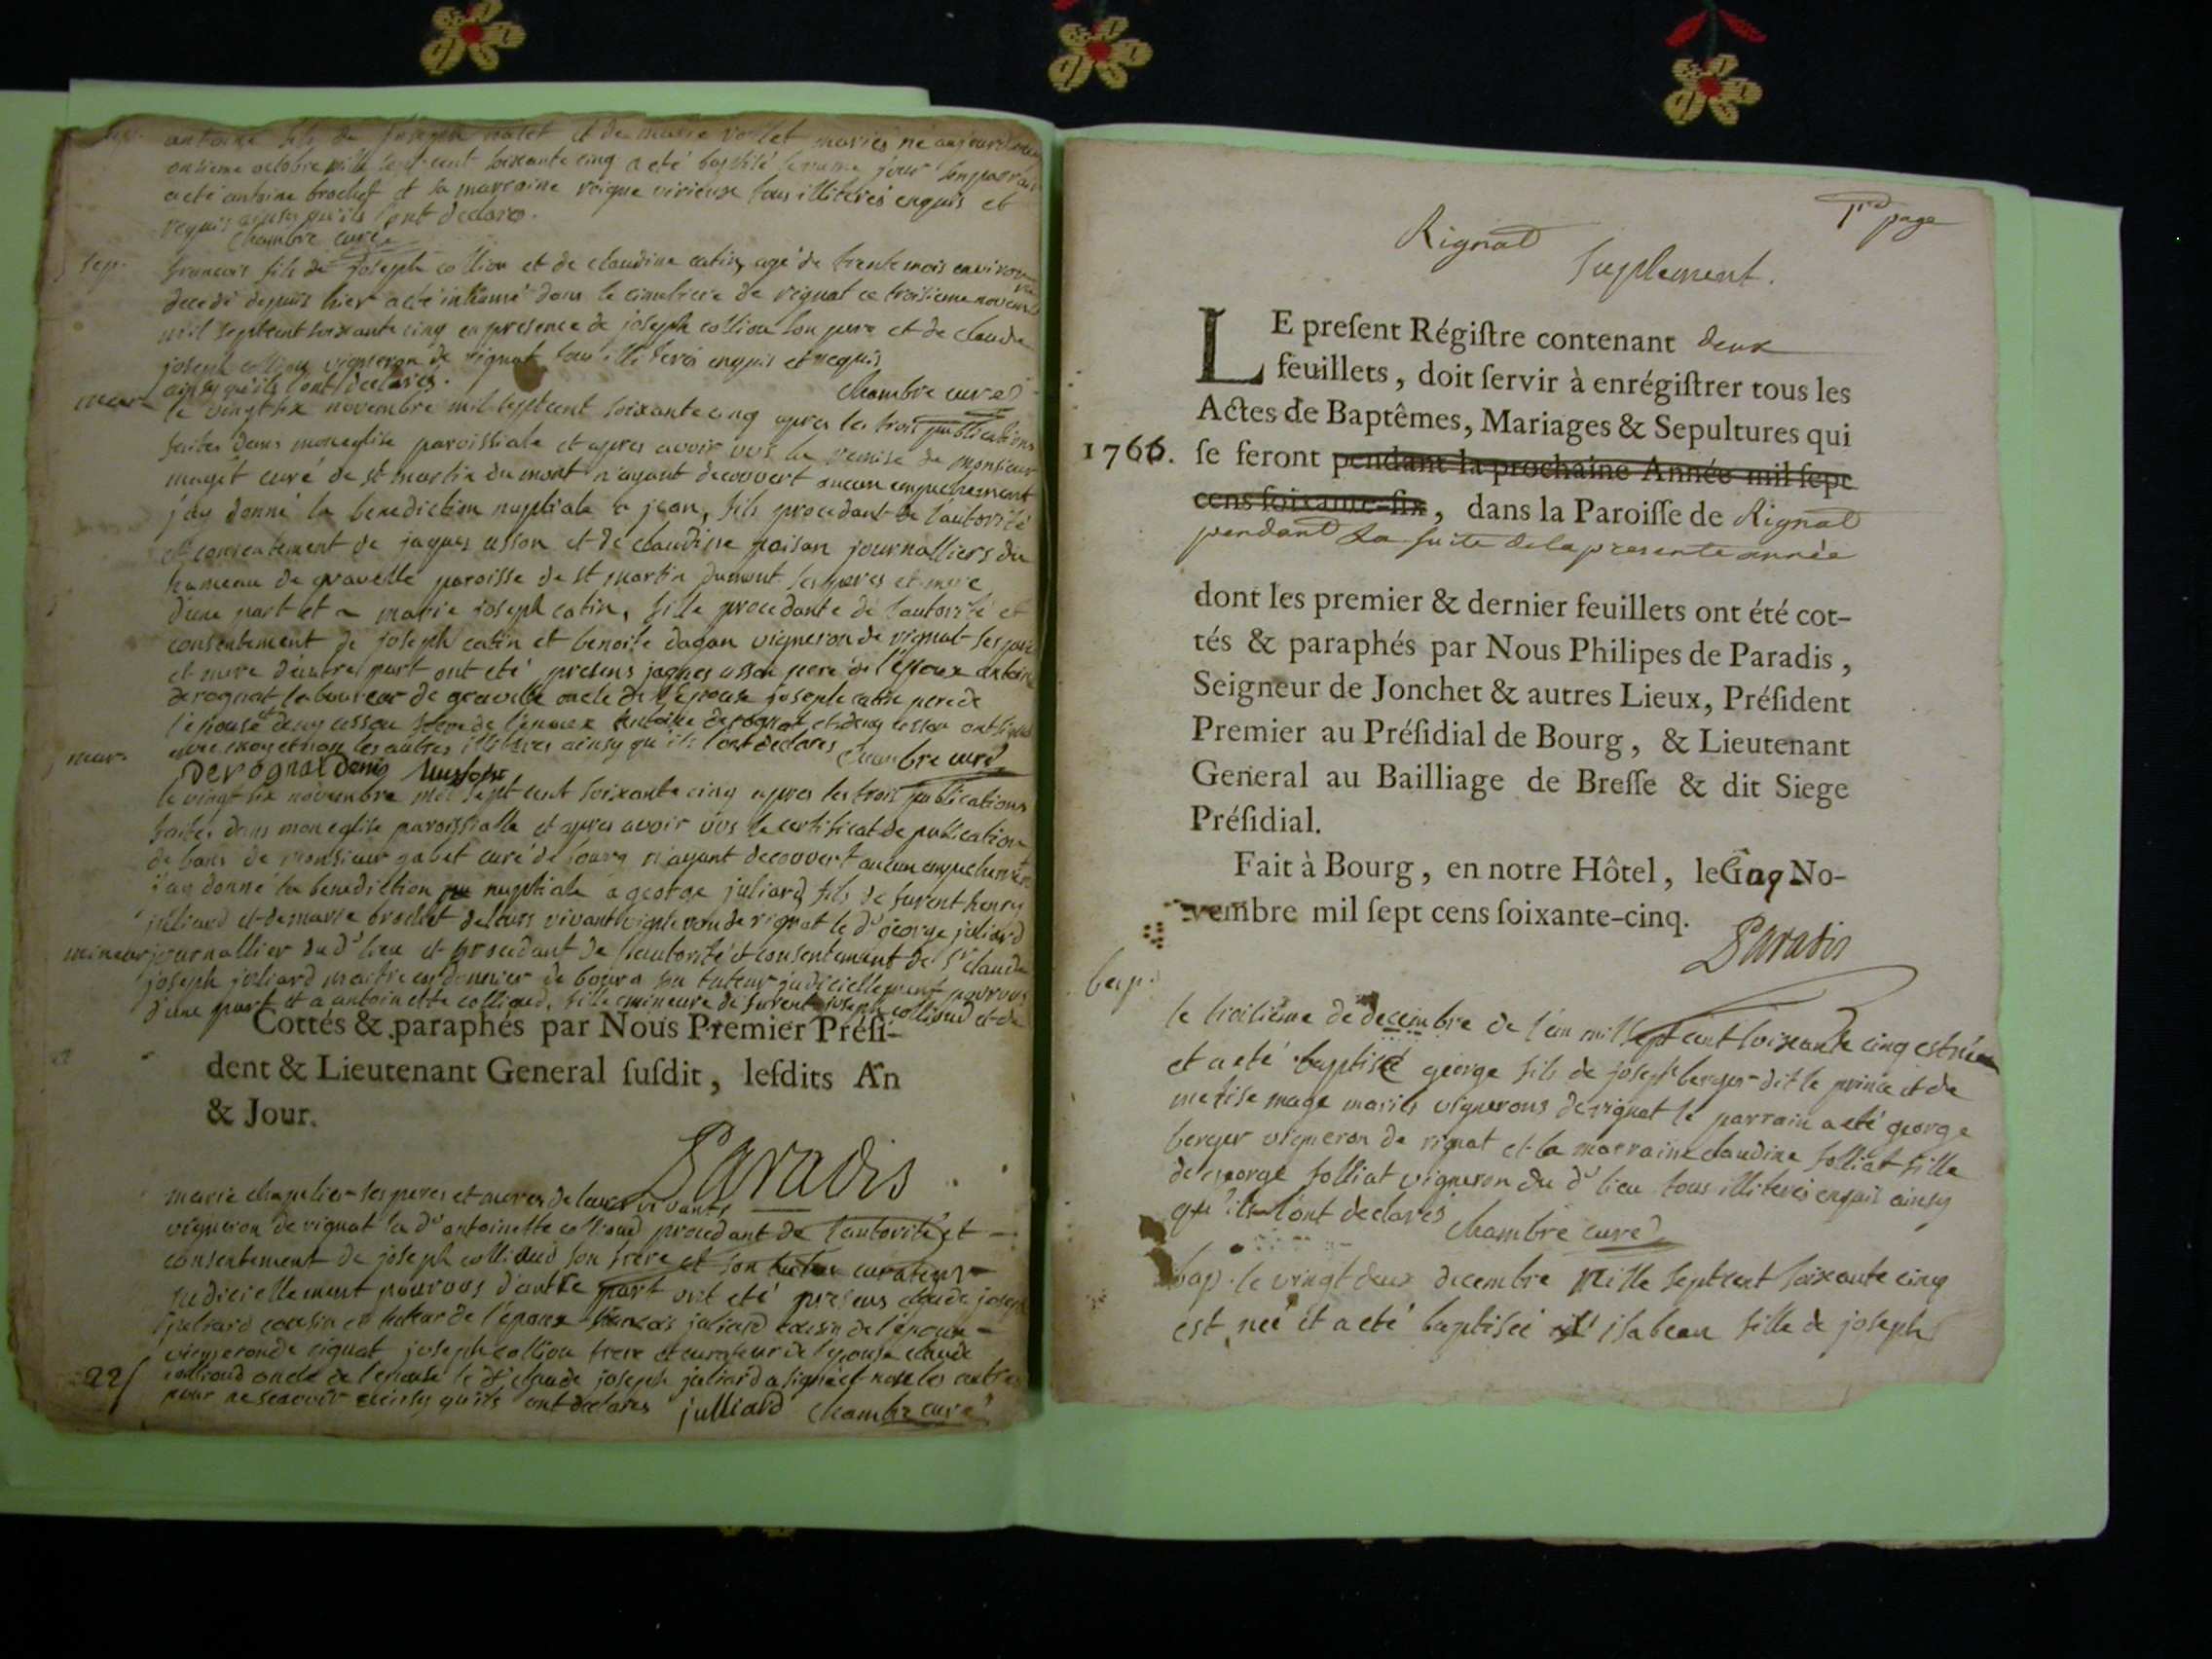 antoine fils de Joseph et de marie mariés né aujourdhuy
onsieme octobre mille sept cent soixante cinq a eté baptisé le meme jour son parrain
a eté antoine brochet et sa marraine reigne virieux tous illiterés enquis et
requis ainsy qu'ils l'ont declaré.
Chambre curé
sep. francois fils de Joseph collion et de claudine catin agé de trente mois environ
decedé depuis hier a eté inhumé dans le cimetiere de rignat ce troisieme novembre
mil sept cent soixante cinq en presence de joseph collion son pere et de claude
joseph collion vigneron de rignat tous illiterés enquis et requis
ainsy qu'ils l'ont declarés.
Chambre curé
mar le vingt six novembre mil sept cent soixante cinq apres les trois publications
faites dans mon eglise paroissiale et apres avoir vus la remise de monsieur
curé de st martin du mont n'ayant decouvert aucun empechement
j'ay donné la benediction nuptiale a jean, fils procedant de l'autorité
et consentement de jaques usson et de claudine poisan journalliers du
hameau de gravelle paroisse de st martin dumont ses peres et mere
d'une part et a marie joseph catin, fille procedante de l'autorité et
consentement de joseph catin et benoite dagan vigneron de rignat ses pere
et mere d'autre part ont eté presens jaques usson pere de l'epoux antoine
derognat laboureur de gravelle oncle de l'epouse joseph catin pere de
l'epouse et deny usson frere de l'epoux antoine derognat et deny usson ont signé
avec moy et non les autres illiteres ainsy qu'ils l'ont declarés
Chambre curé
Derognat denis
mar. le vingt six novembre mil sept cent soixante cinq apres les trois publications
faites dans mon eglise paroissialle et apres avoir vus le certificat de publication
de bans de monsieur gabet curé de bourg n'ayant decouvert aucun empechement
j'ay donné la benediction nuptiale a george juliard fils de furent henry
juliard et de marie brochet de leurs vivants vigneron de rignat le dt george juliard
mineur journallier du dt lieu et procedant de l'autorité et consentement de sr claude
joseph juliard maitre cordonnier de bourg son tuteur judiciellement pourvus
d'une part et a antoinette collioud, fille mineure de furent joseph collioud et de
Cottés & paraphés par Nous Premier Prési-
dent & Lieutenant General susdit, lesdits An
& Jour.
Paradis
marie chapelier ses peres et meres de leurs vivants
vigneron de rignat la dt antoinette collioud procedant de l'autorité et
consentement de joseph collioud son frere et son curateur
judiciellement pourvus d'autre part ont eté presens claude joseph
juliard cousin et tuteur de l'epoux francois juliard cousin de l'epoux
vigneron de rignat joseph collion frere et curateur de l'epouse claude
collioud oncle de l'epouse le dt claude joseph juliard a signé et non les autres
pour ne scavoir ainsy qu'ils ont declarés julliard Chambre curé
22
1re page
Rignat
Suplement.
LE present Régistre contenant deux
feuillets, doit servir à enrégistrer tous les
Actes de Baptêmes, Mariages & Sepultures qui
1766. se feront pendant la prochaine Année mil sept
cens soixante-six, dans la Paroisse de Rignat
pendant la suite de la presente année
dont les premier & dernier feuillets ont été cot-
tés & paraphés par Nous Philipes de Paradis,
Seigneur de Jonchet & autres Lieux, Président
Premier au Présidial de Bourg, & Lieutenant
General au Bailliage de Bresse & dit Siege
Présidial.
Fait à Bourg, en notre Hôtel, le Cinq No-
vembre mil sept cens soixante-cinq.
Paradis
bap.
le troisième de decembre de l'an mil sept cent soixante cinq est née
et a eté baptisé george fils de joseph berger dit le prince et de
metise mage mariés vignerons de rignat le parrain a eté george
berger vigneron de rignat et la marraine claudine folliat fille
de george folliat vigneron du dt lieu tous illiterés enquis ainsy
qu'ils l'ont declarés
Chambre curé
bap. le vingt deux decembre mille sept cent soixante cinq
est née et a eté baptisée isabeau fille de joseph